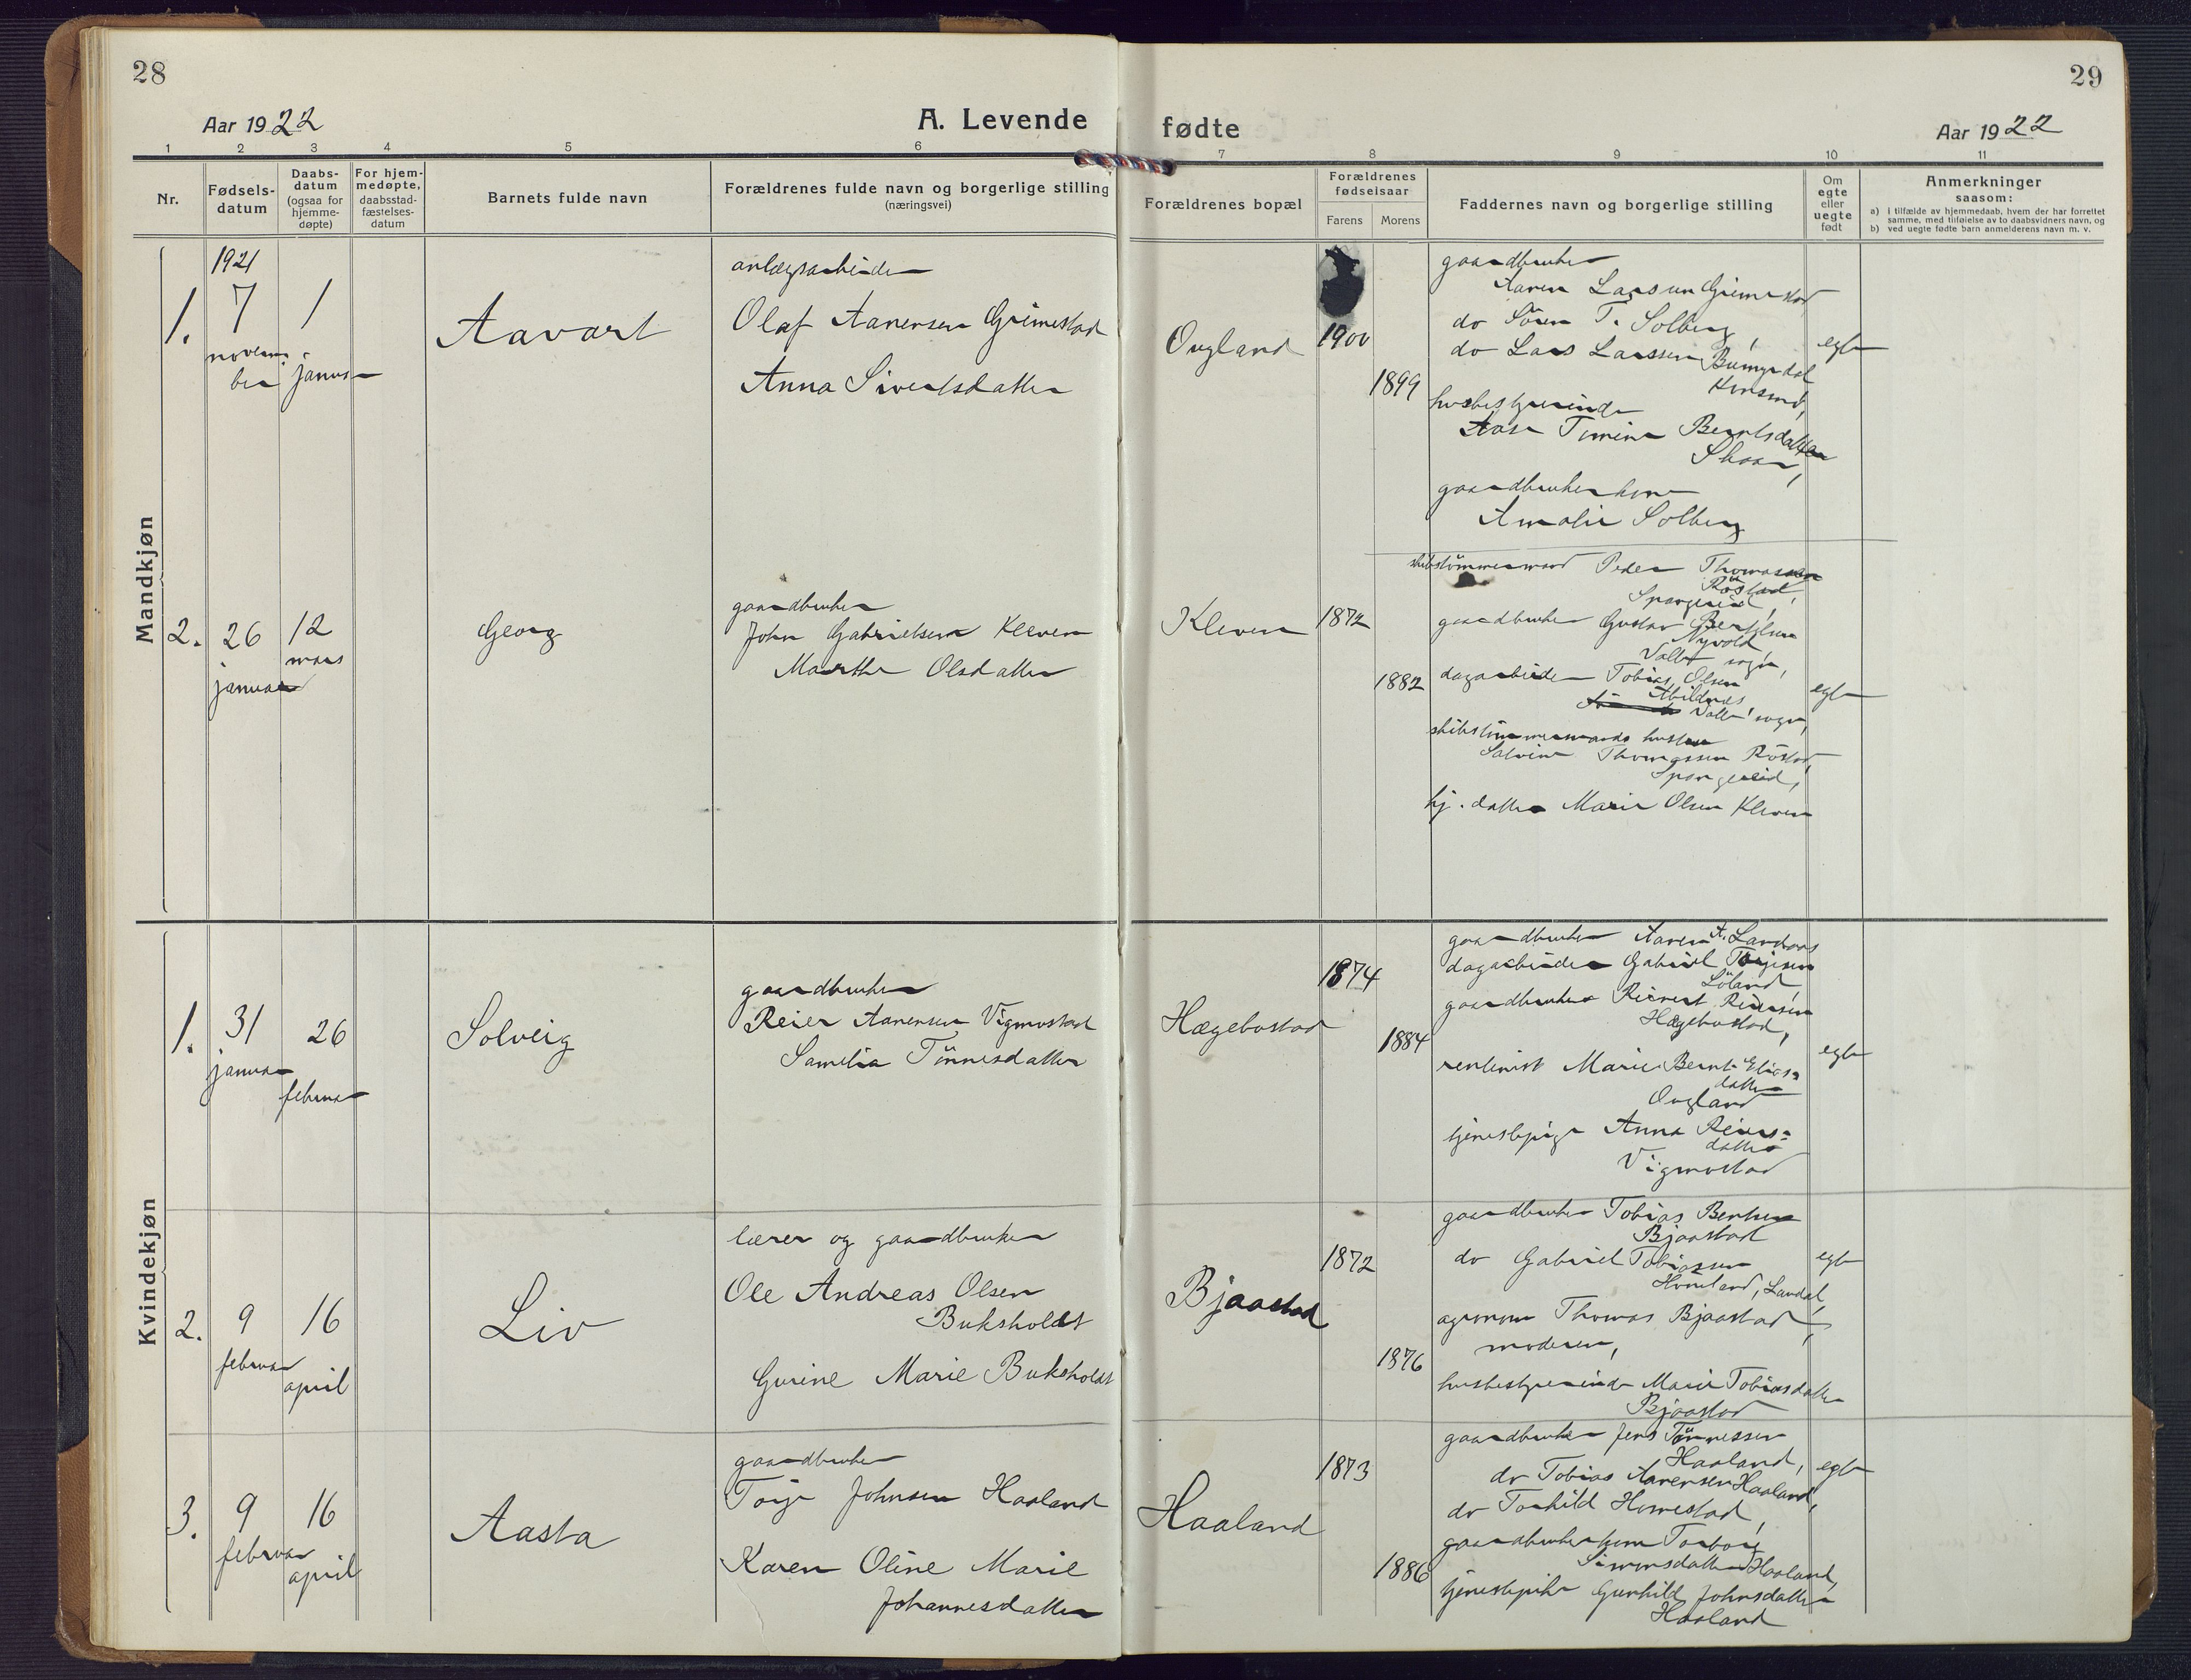 28
29
Aar 1922
A. Levende
fødte
Aar 1922
1 2 3 4 5 6 7 8 9 10 11
Nr.
Fødsels-
datum
Daabs-
datum
(ogsaa for
hjemme-
døpte)
For hjem-
medøpte,
daabsstad-
fæstelses-
datum
Barnets fulde navn
Forældrenes fulde navn og borgerlige stilling
(næringsvei)
Forældrenes bopæl
Forældrenes
fødselsaar
Farens
Morens
Faddernes navn og borgerlige stilling
Om
egte
eller
uegte
født
Anmerkninger
saasom:
a) i tilfælde av hjemmedaab, hvem der har forrettet
samme, med tilføielse av to daabsvidners navn, og
b) ved uegte fødte barn anmelderens navn m. v.
Mandkjøn
1.
1921
7
novem
ber
1
januar
Aavart
anlægsarbeider
Olaf Aanensen Grimestad
Anna Sivertsdatter
Ougland
1900
1899
gaardbruker
Aanen Larsen Grimestad
do Sören T. Solberg,
do Lars Larssen
husbestyrerinde
Aase Berntsdatter
gaardbrukerkone
Amalie Solberg
egte
2.
26
januar
12
mars
Georg
gaardbruker
John Gabrielsen Kleven
Marthe Olsdatter
Kleven
1872
1882
skibstömmermand Peder Thomassen
Röstad,
Spangereid,
gaardbruker Gustav Bertilsen
Nyvold
Valle sogn,
dagarbeider Tobias Olsen
Abildnæs
Valle sogn,
skibstömmermands hustru
Salvine Thomassen Röstad,
Spangereid,
hj. datter Marie Olsen Kleven
egte
Kvindekjøn
1.
31
januar
26
februar
Solveig
gaardbruker
Reier Aanensen Vigmostad
Samelia Tönnesdatter
Hægebostad
1874
1884
gaardbruker Aanen A. Landaas
dagarbeider Gabriel Torjesen
Löland,
gaardbruker Reinert Reiersen
Hægebostad,
rentenist Marie Bernt Elias-
datter
Ougland
tjenestepige Anna Reiers-
datter
Vigmostad
egte
2.
9
februar
16
april
Liv
lærer og gaardbruker
Ole Andreas Olsen
Buksholdt
Gurine Marie Buksholdt
Bjaastad
1872
1876
gaardbruker Tobias Bentsen
Bjaastad
do Gabriel Tobiassen
Homeland, Laudal,
agronom Thomas Bjaastad,
moderen,
husbestyrerinde Marie Tobiasdatter
Bjaastad
egte
3.
9
februar
16
april
Aasta
gaardbruker
Torje Johnsen Haaland
Karen Oline Marie
Johannesdatter
Haaland
1873
1886
gaardbruker Jens Tönnessen
Haaland,
do Tobias Aanensen Haaland,
do Torkild Homestad,
gaardbrukerkone Torborg
Simonsdatter Haaland,
tjenestepike Gunhild Johnsdatter
Haaland
egte